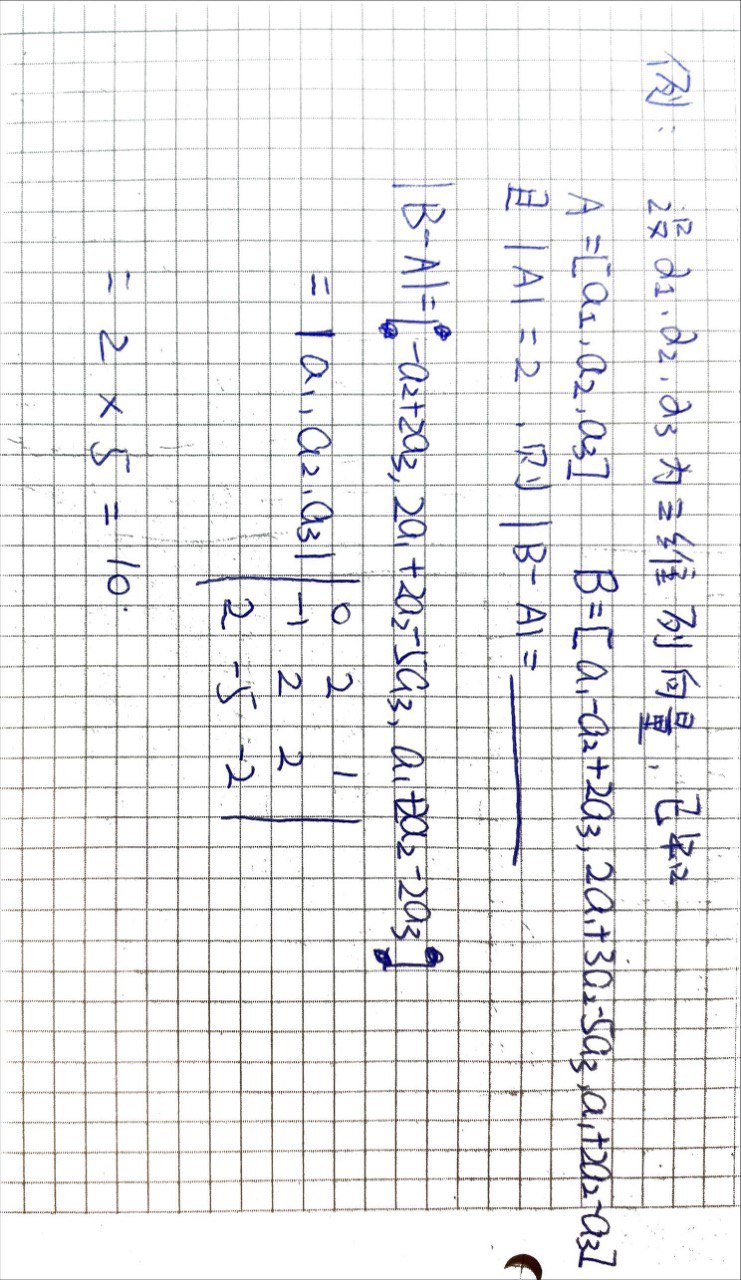 例:
设 α1, α2, α3 为三维列向量, 已知
A=[a1, a2, a3] B=[a1-a2+2a3, 2a1+3a2-5a3, a1+2a2-a3]
且 |A|=2, 则 |B-A|=
|B-A|=[-a2+2a3, 2a1+2a2-5a3, a1+2a2-2a3]
=|a1, a2, a3| | 0 2 1
-1 2 2
2 -5 -2 |
=2×5=10.